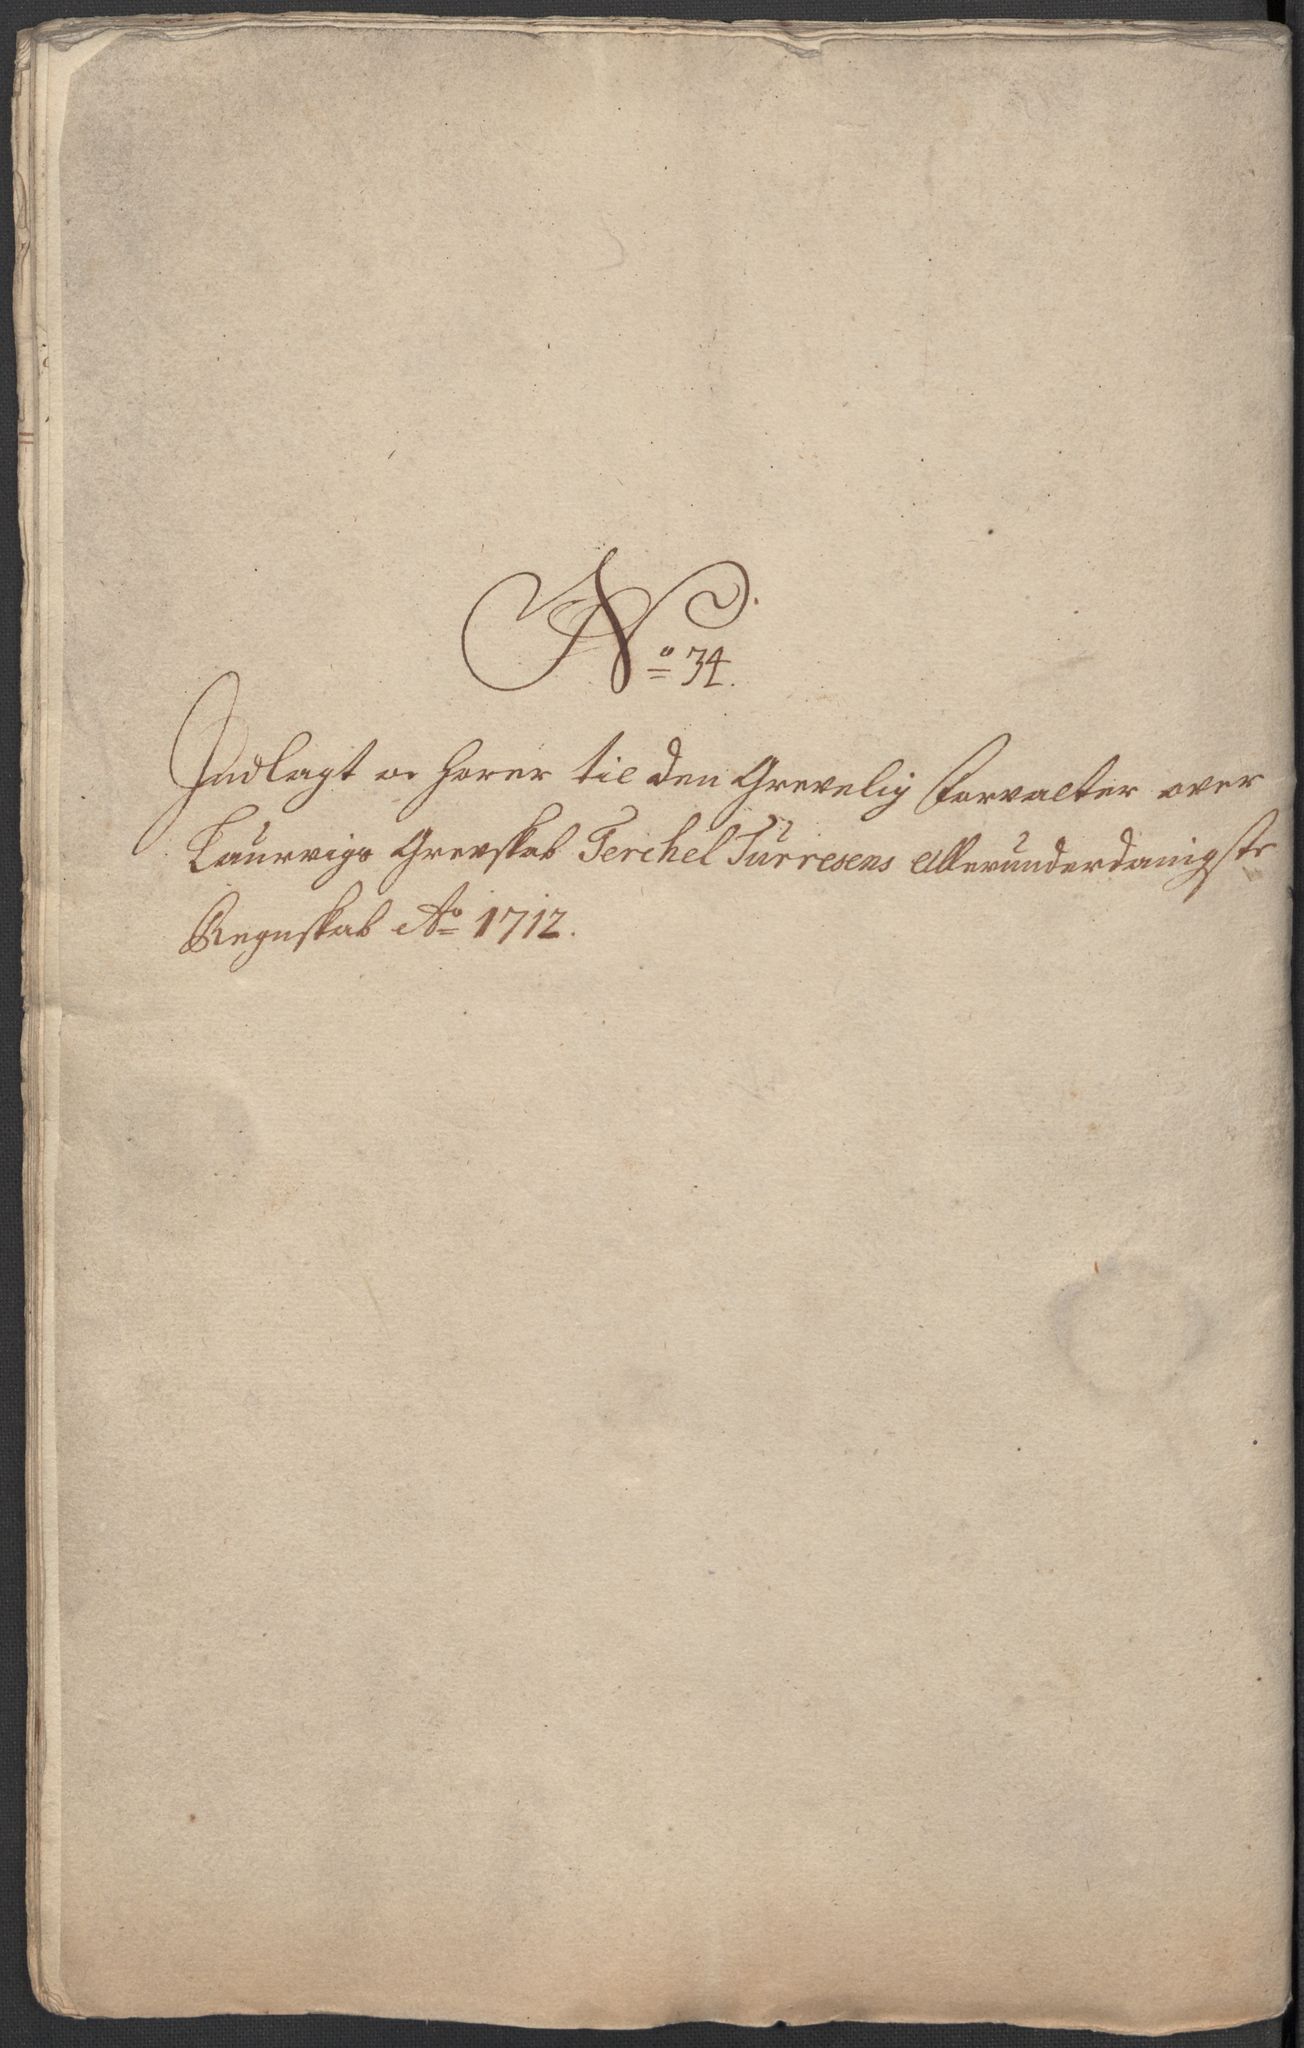 No 34.
Indlagt oc hører til den Grevelig Forvalter over
Laurvigs Grevskab Terchel Türresens Allerunderdanigste
Regnskab Ao 1712.